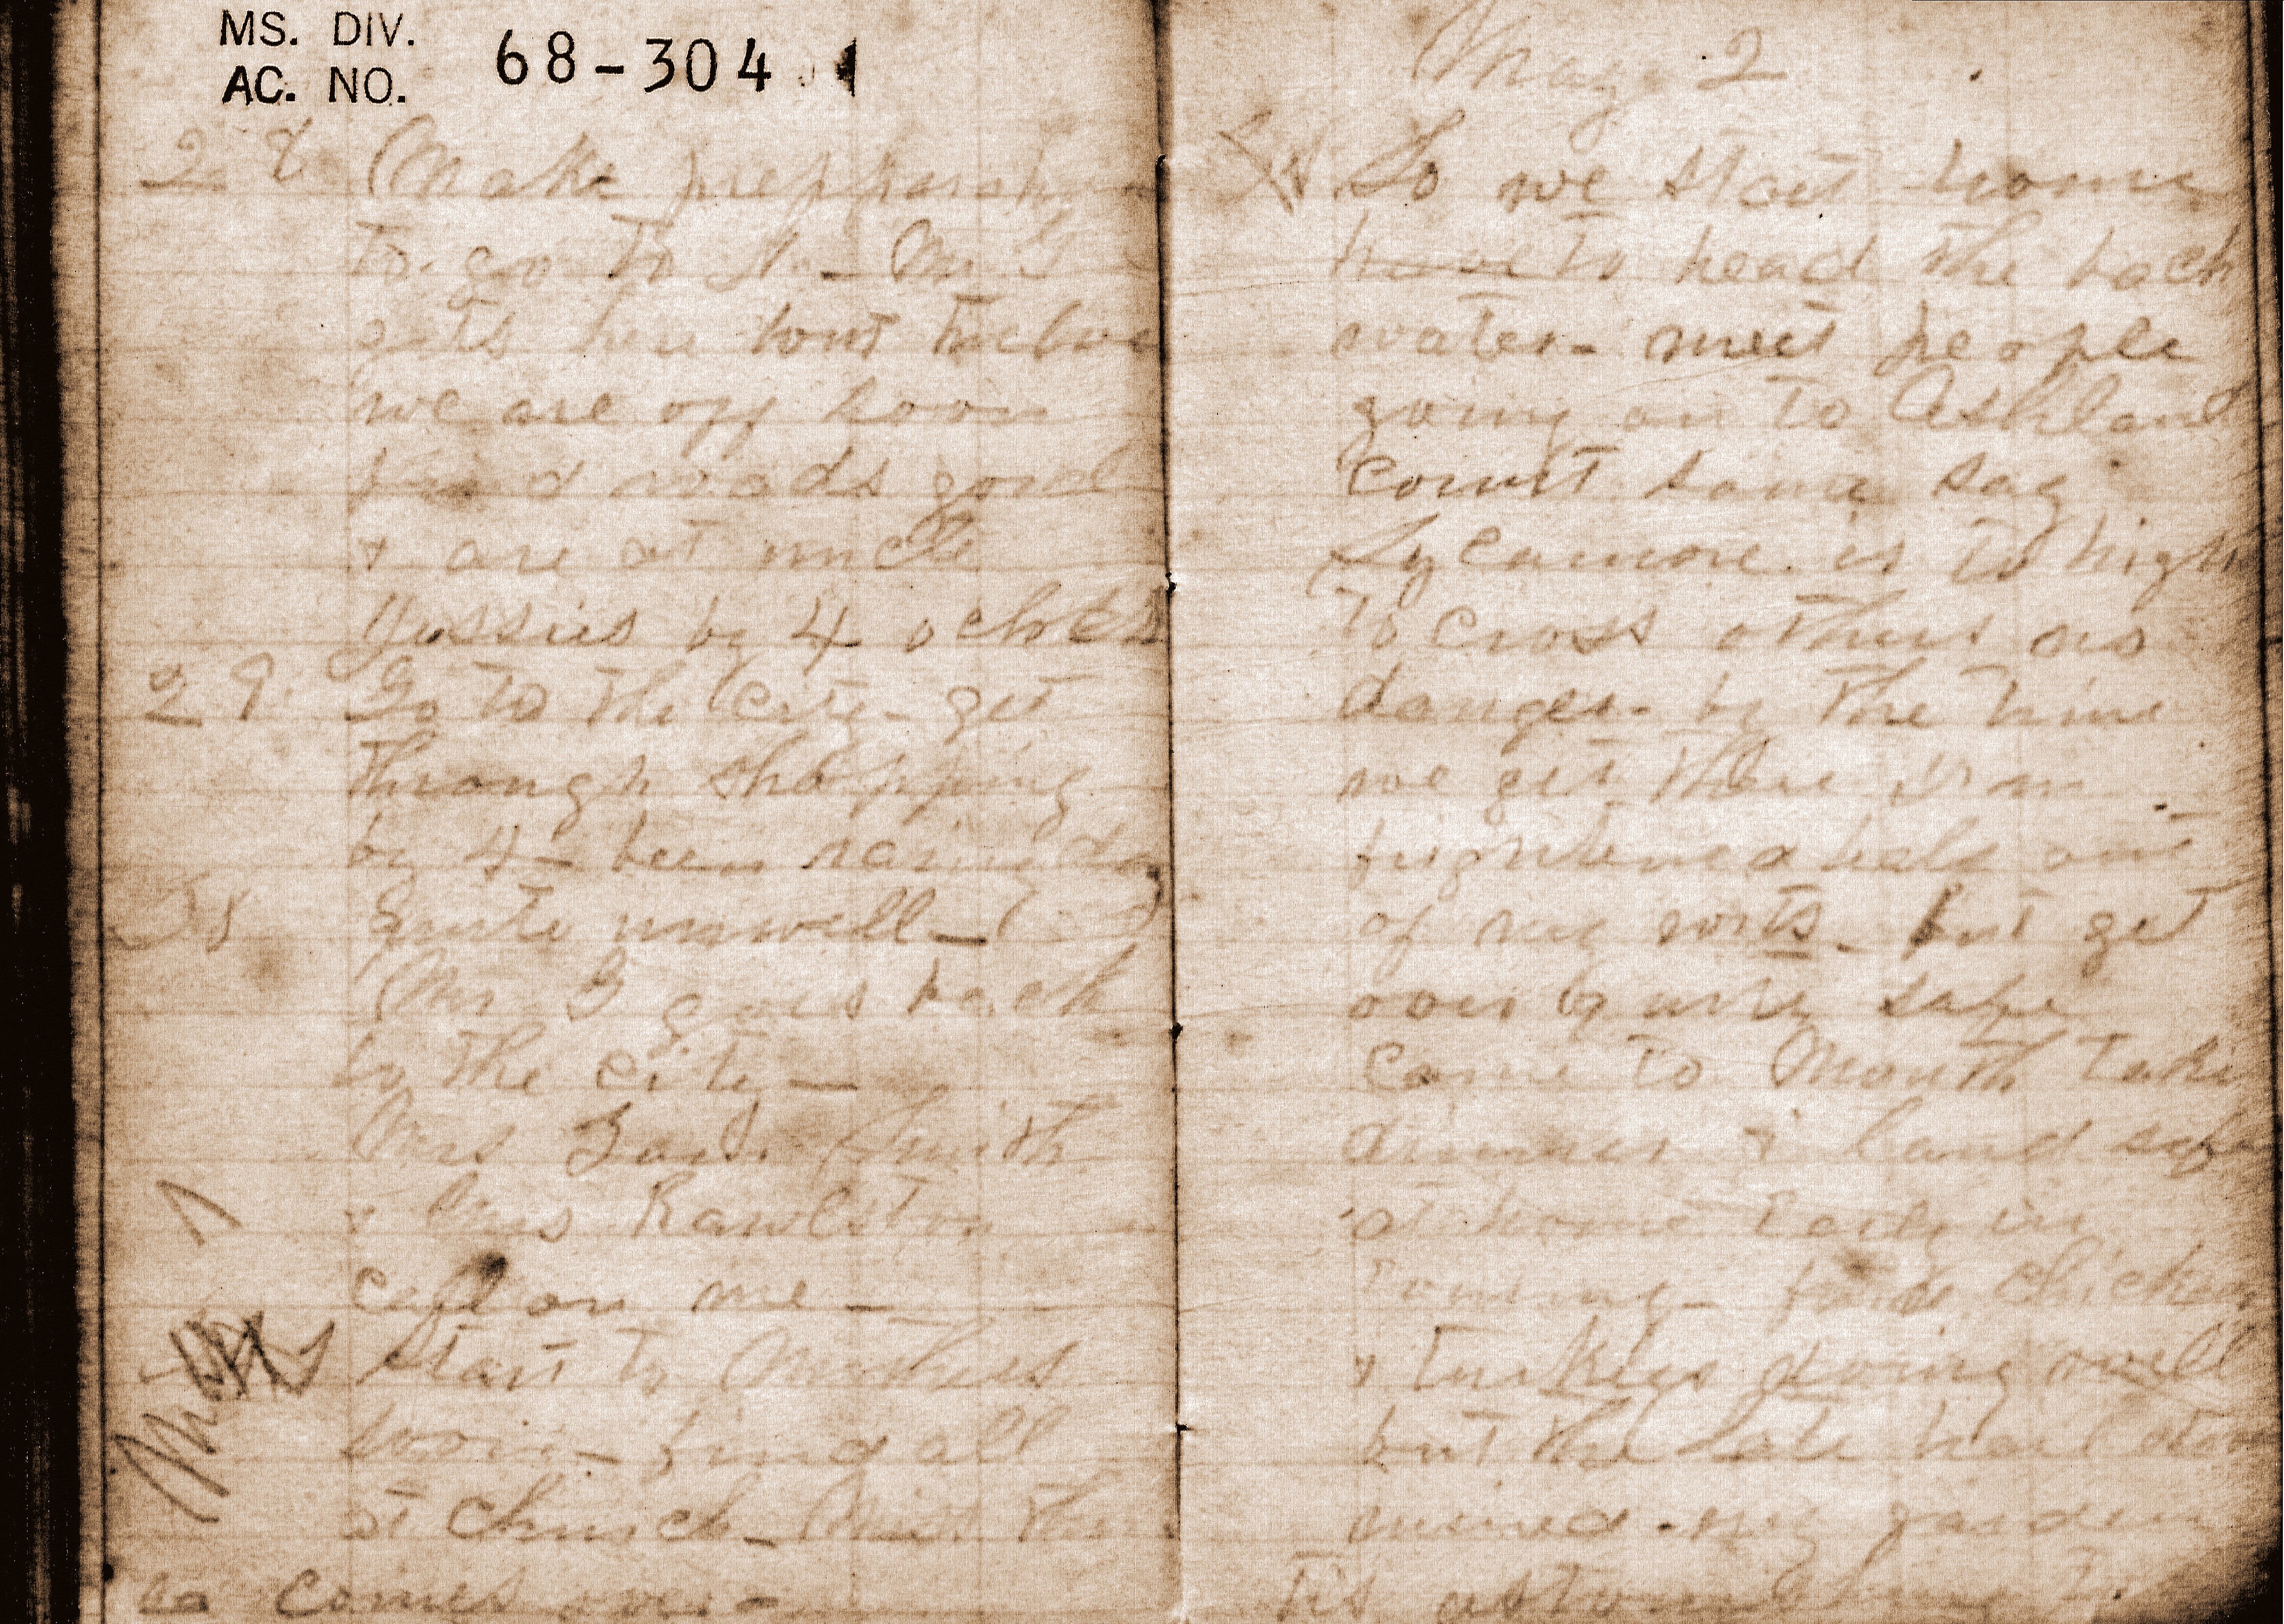 MS. DIV.
AC. NO. 68-304
28 Make
to go to N- Mr
gets here bout twelve
we are off soon
find roads good
& are at uncle
by 4 oclck
29 Go to the City - get
through shopping
by 4 - been
Quite unwell -
Mr B goes back
to the city -
Mrs Smith
& Mrs Rawlston
call on me -
start to
soon - find all
at church -
comes over -
May 2
So we start home
have to head the back
water - meet people
going on to Ashland
Court some say
Sycamore is to high
to cross others no
danger - by the time
we get there I'm
frightened half out
of my wits - but get
over safe
Came to Mouth take
dinner & land safe
at home early in
find chicken
& turkies doing well
but the late hail storm
ruined my garden
Tis